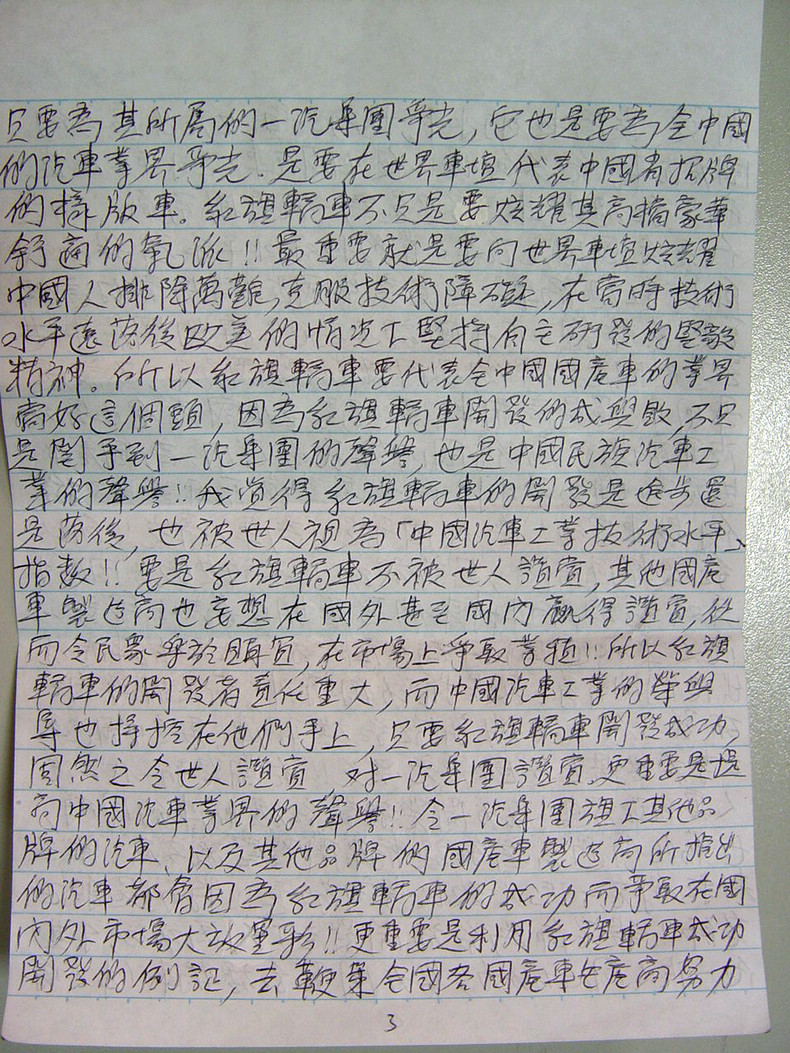 只要為其所屬的一汽集團爭光，它也是要為全中國
的汽車業界爭光．是要在世界車壇代表中國者招牌
的樣版車。紅旗轎車不只是要炫耀其高檔豪華
舒適的氣派!!最重要就是要向世界車壇炫耀
中國人排除萬難，克服技術障礙，在當時技術
水平遠落後歐美的情況下堅持自主研發的堅毅
精神。所以紅旗轎車要代表全中國國產車的業界
搞好這個頭，因為紅旗轎車開發的成與敗，不只
是關乎到一汽集團的聲譽，也是中國民族汽車工
業的聲譽!!我覺得紅旗轎車的開發是進步還
是落後，也被世人視為「中國汽車工業技術水平」
指數!!要是紅旗轎車不被世人讚賞，其他國產
車製造商也妄想在國外甚至國內贏得讚賞，從
而令民眾樂於購買，在市場上爭取業績!!所以紅旗
轎車的開發者責任重大，而中國汽車工業的榮與
辱也掌控在他們手上，只要紅旗轎車開發成功，
固然之令世人讚賞 對一汽集團讚賞，更重要是提
高中國汽車業界的聲譽!!令一汽集團旗下其他品
牌的汽車、以及其他品牌的國產車製造商所推出
的汽車都會因為紅旗轎車的成功而爭取在國
內外市場大放異彩!!更重要是利用紅旗轎車成功
開發的例証，去鞭策全國各國產車生產商努力
3